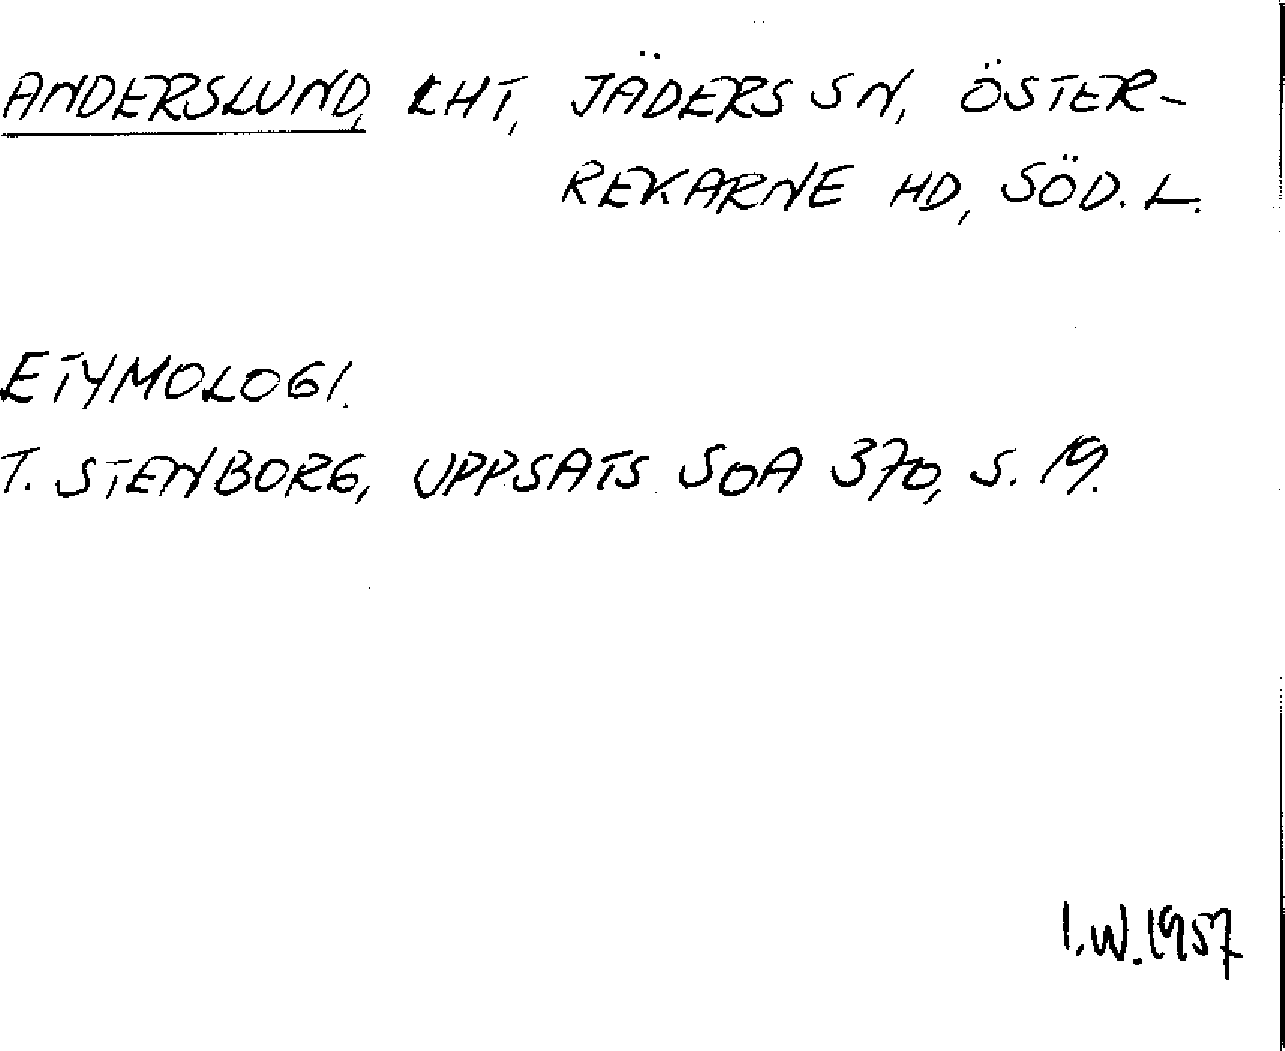 ANDERSLUND, LHT, JÄDERS SN, ÖSTER-
REKARNE HD, SÖD. L.
ETYMOLOGI.
T. STENBORG, UPPSATS SOA 370, S. 19.
I.W. 1957